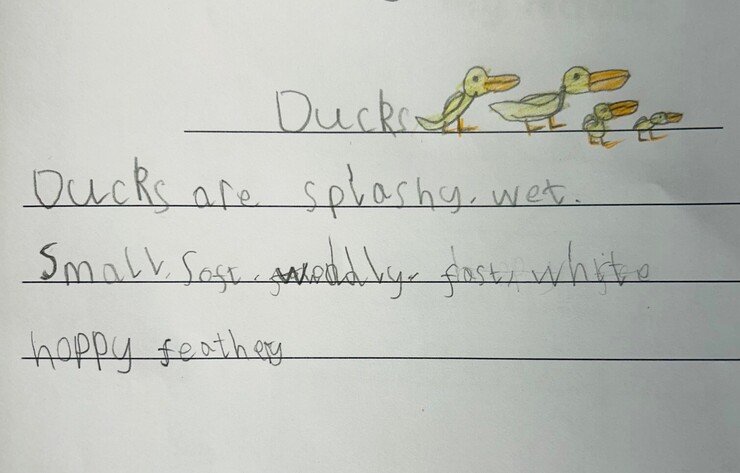 Ducks
Ducks are splashy. wet.
Small. Soft. fast, white
hoppy feathey